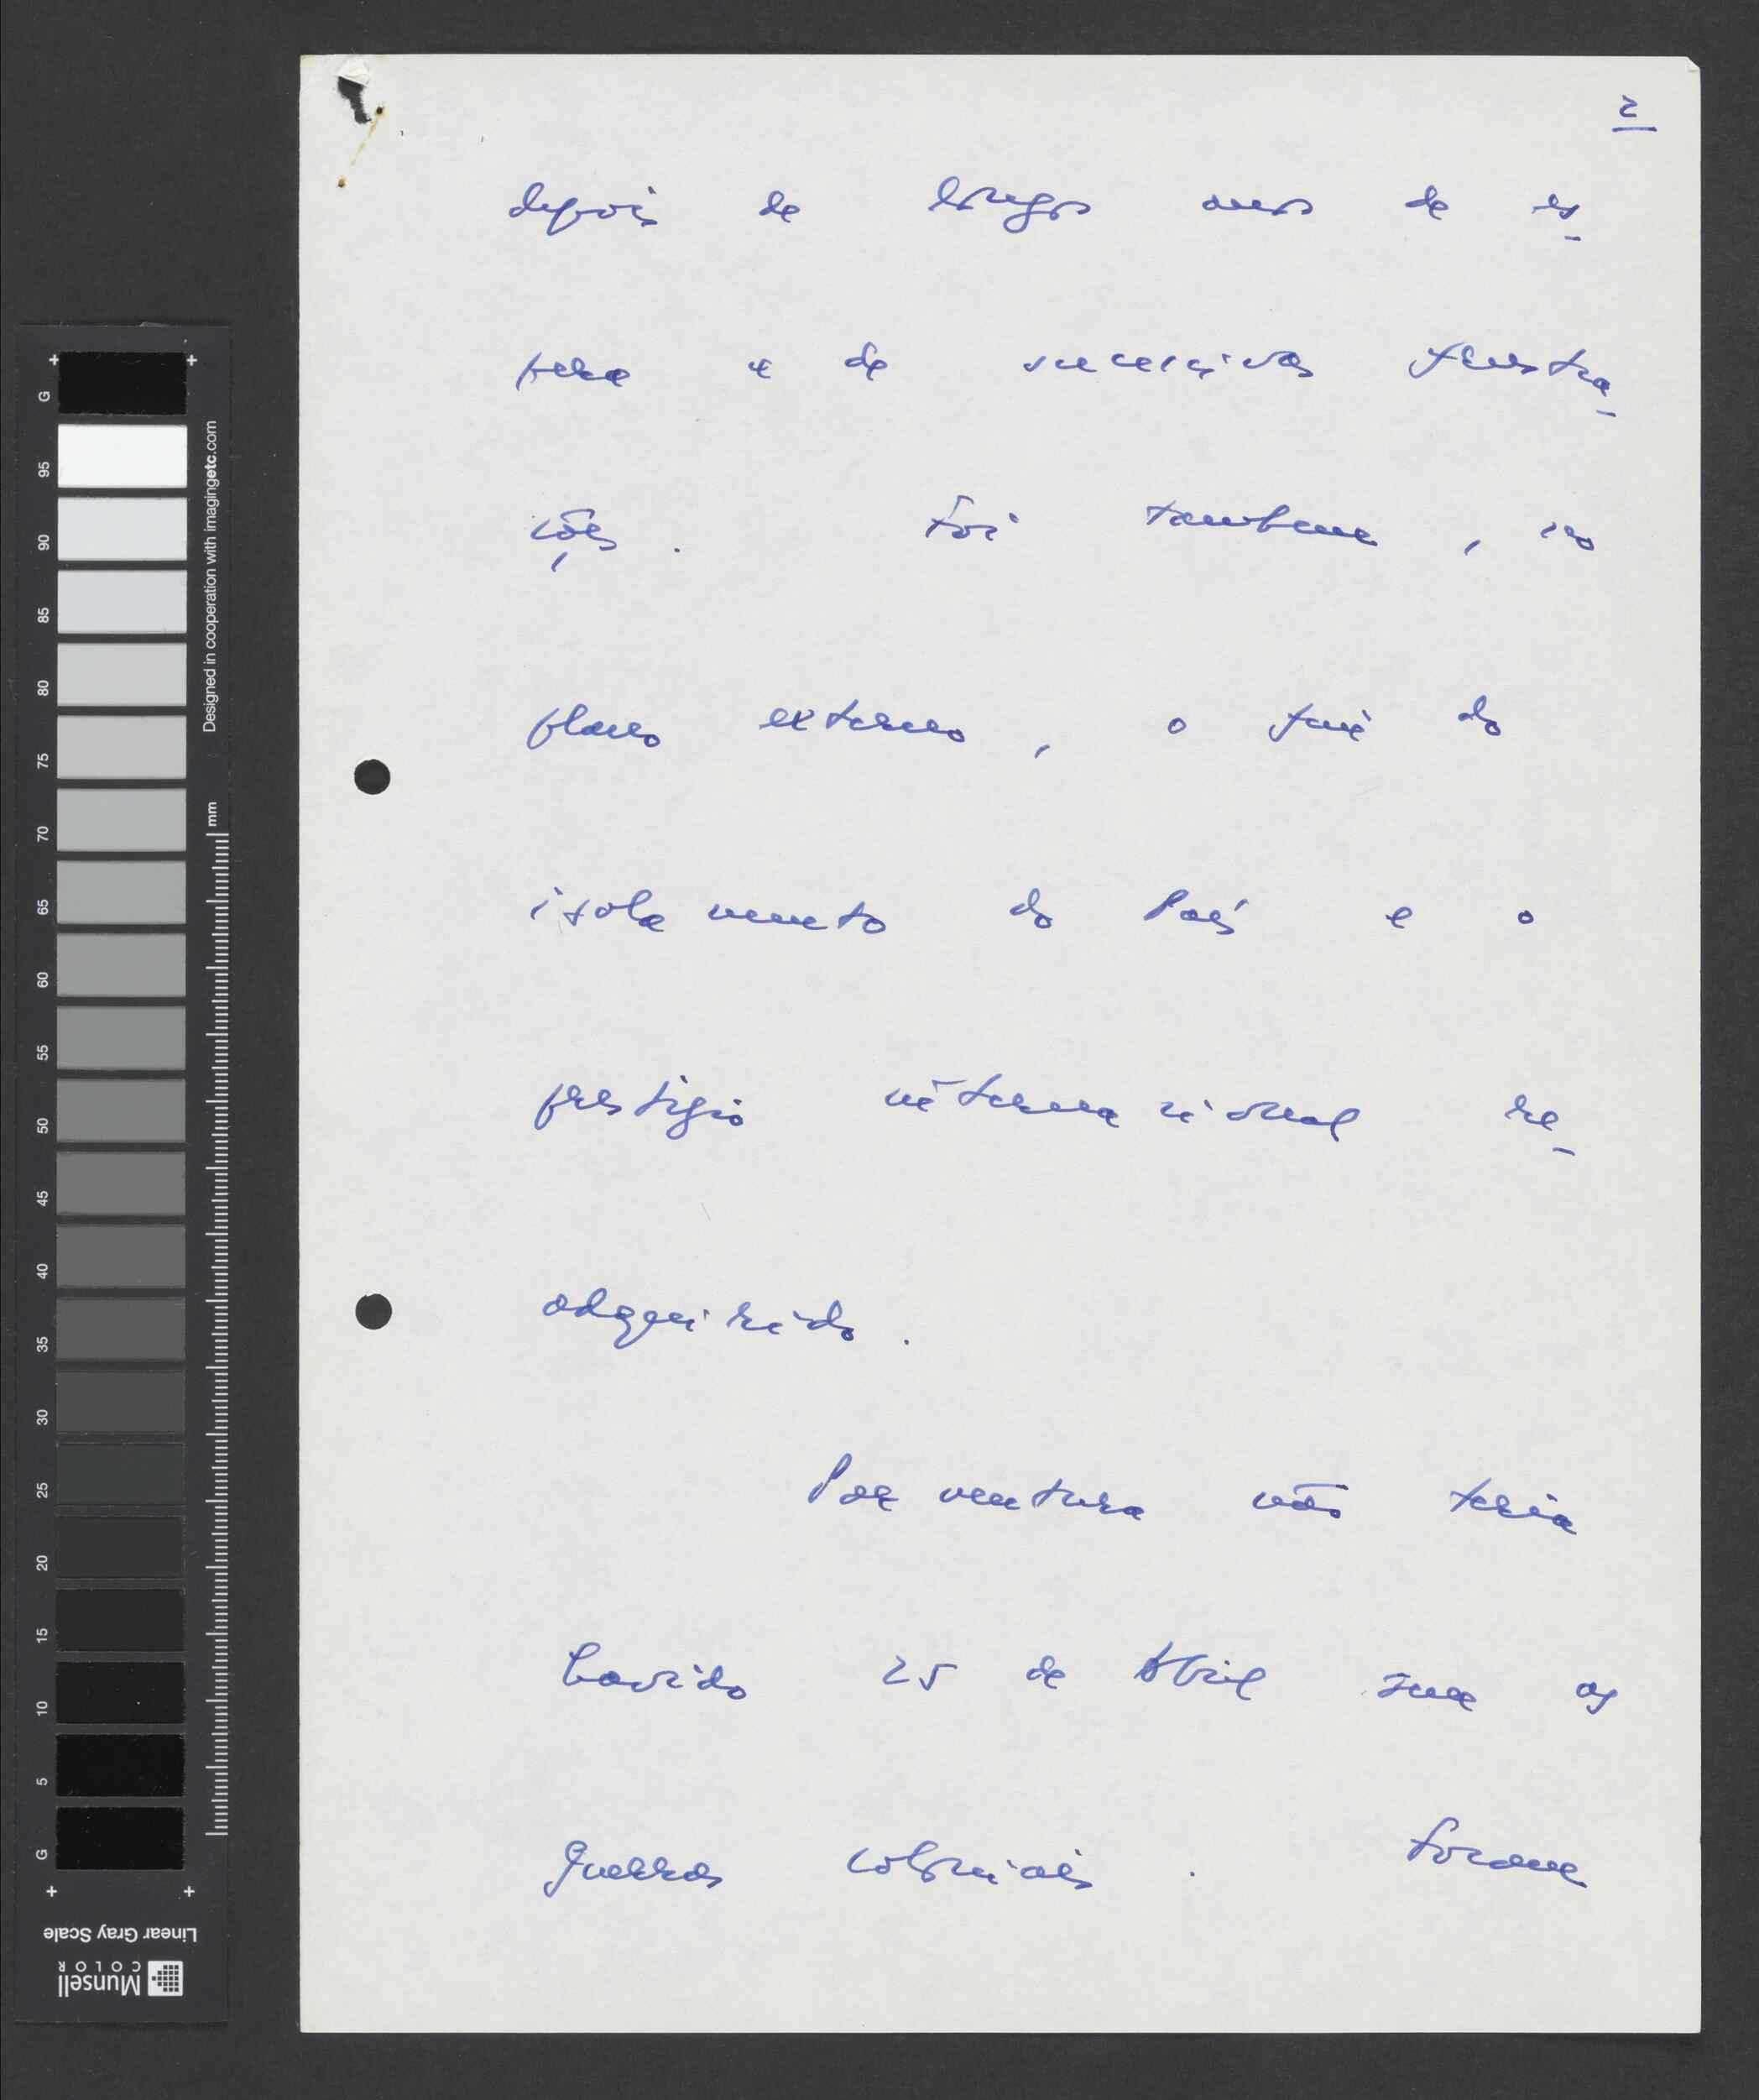 2
depois de longos anos de es-
pera e de sucessivas frustra-
ções. Foi tambem, no
plano externo, o fim do
isolamento do País e o
prestígio internacional re-
adquirido.
Porventura não teria
havido 25 de Abril sem as
guerras coloniais. Foram
G
95
90
85
80
75
70
65
60
55
50
45
40
35
30
25
20
15
10
5
G
mm
Designed in cooperation with imagingetc.com
Linear Gray Scale
Munsell
COLOR